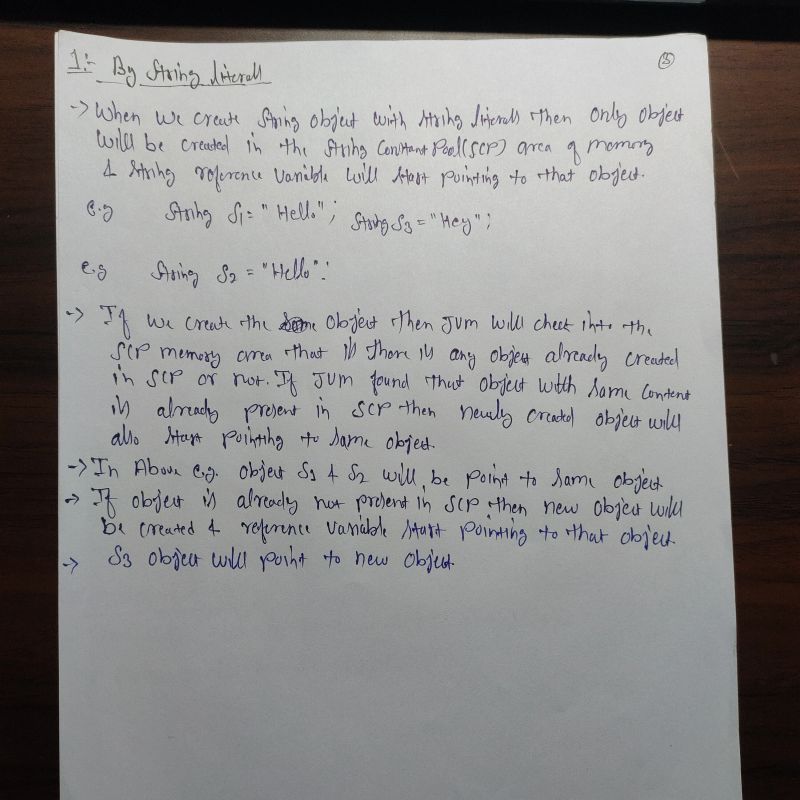 ③
1:- By String literall
-> When we create String object with string literall then only object
will be created in the String Constant Pool(SCP) area of memory
& string reference variable will start pointing to that object.
e.g String S1 = "Hello"; String S3 = "Hey";
e.g String S2 = "Hello";
-> If we create the same object then JVM will check into the
SCP memory area that is there is any object already created
in SCP or not. If JVM found that object with same content
is already present in SCP then newly created object will
also start pointing to same object.
-> In Above e.g. object S1 & S2 will be point to same object
-> If object is already not present in SCP then new object will
be created & reference variable start pointing to that object.
-> S3 object will point to new object.